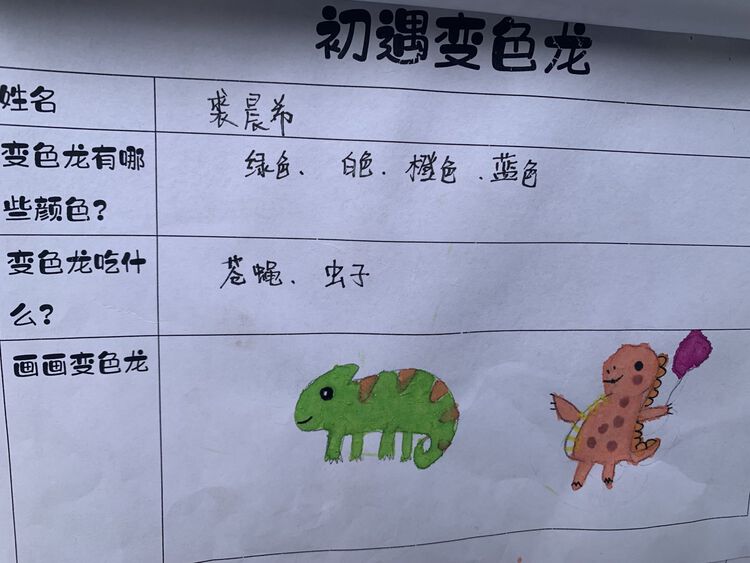 初遇变色龙
姓名
裘晨希
变色龙有哪
些颜色？
绿色、白色、橙色、蓝色
变色龙吃什
么？
苍蝇、虫子
画画变色龙